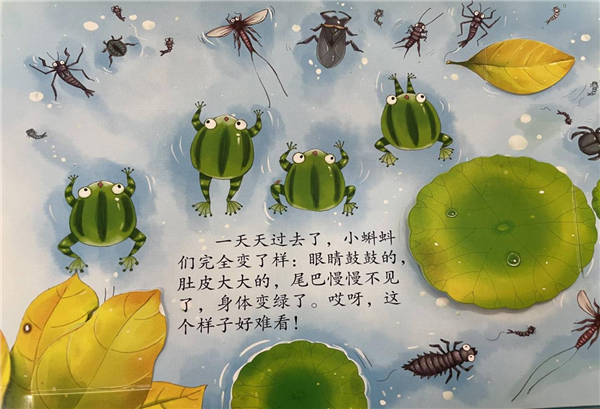 一天天过去了，小蝌蚪
们完全变了样：眼睛鼓鼓的，
肚皮大大的，尾巴慢慢不见
了，身体变绿了。哎呀，这
个样子好难看！